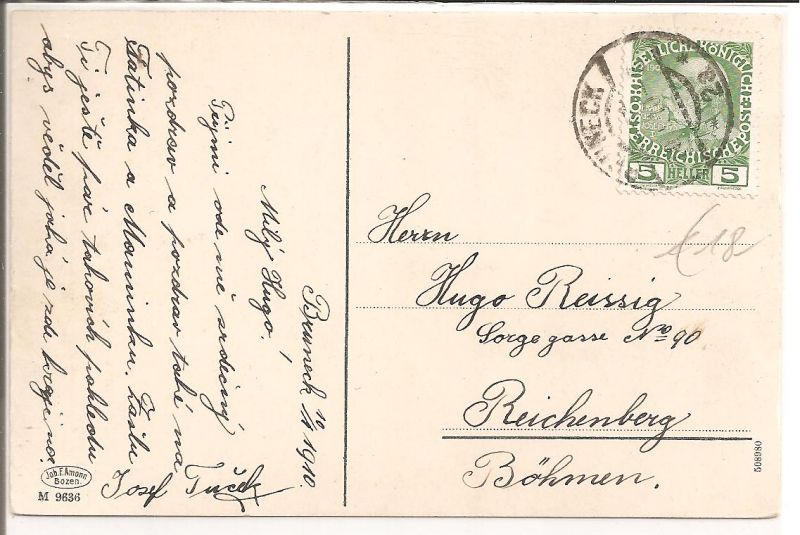 Bruneck 10/11 1910.
Milý Hugo!
Přijmi ode mě srdečný
pozdrav a pozdrav také na
Tatinka a Maminku. Zašlu
Ti ještě pár takových pohledů
abys věděl jaká je zde krajina.
Josef Tuček
Joh. F. Amonn
Bozen.
M 9636
KAISERLICHE KÖNIGLICHE
ÖSTERREICHISCHE POST
5 HELLER 5
BRUNECK
Herrn
Hugo Reissig
Sorgegasse No 90
Reichenberg
Böhmen.
£18
508980